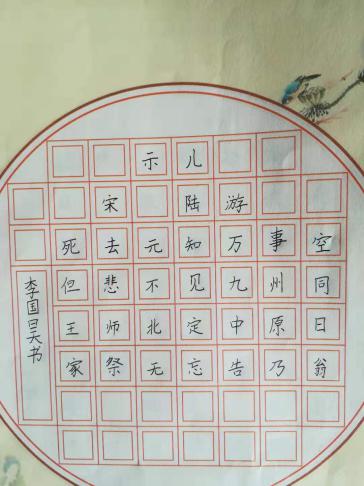 示儿
宋 陆游
死去元知万事空
但悲不见九州同
王师北定中原日
家祭无忘告乃翁
李国昊书